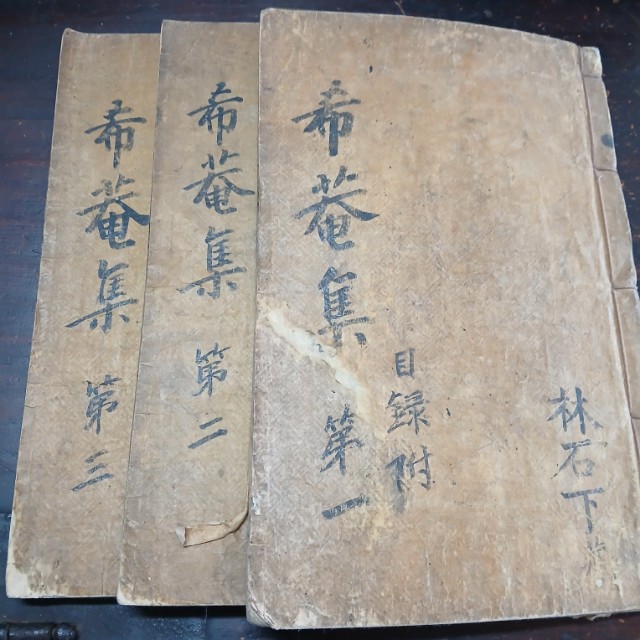 希菴集 第一
目録附
林石下
希菴集 第二
希菴集 第三